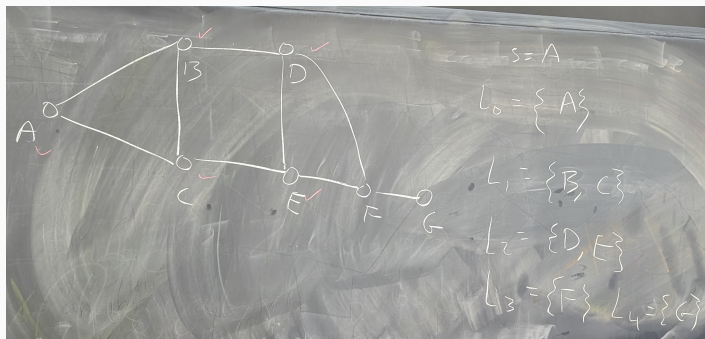 A
B
C
D
E
F
G
s = A
L₀ = { A }
L₁ = {B, C}
L₂ = {D, E}
L₃ = {F} L₄ = {G}